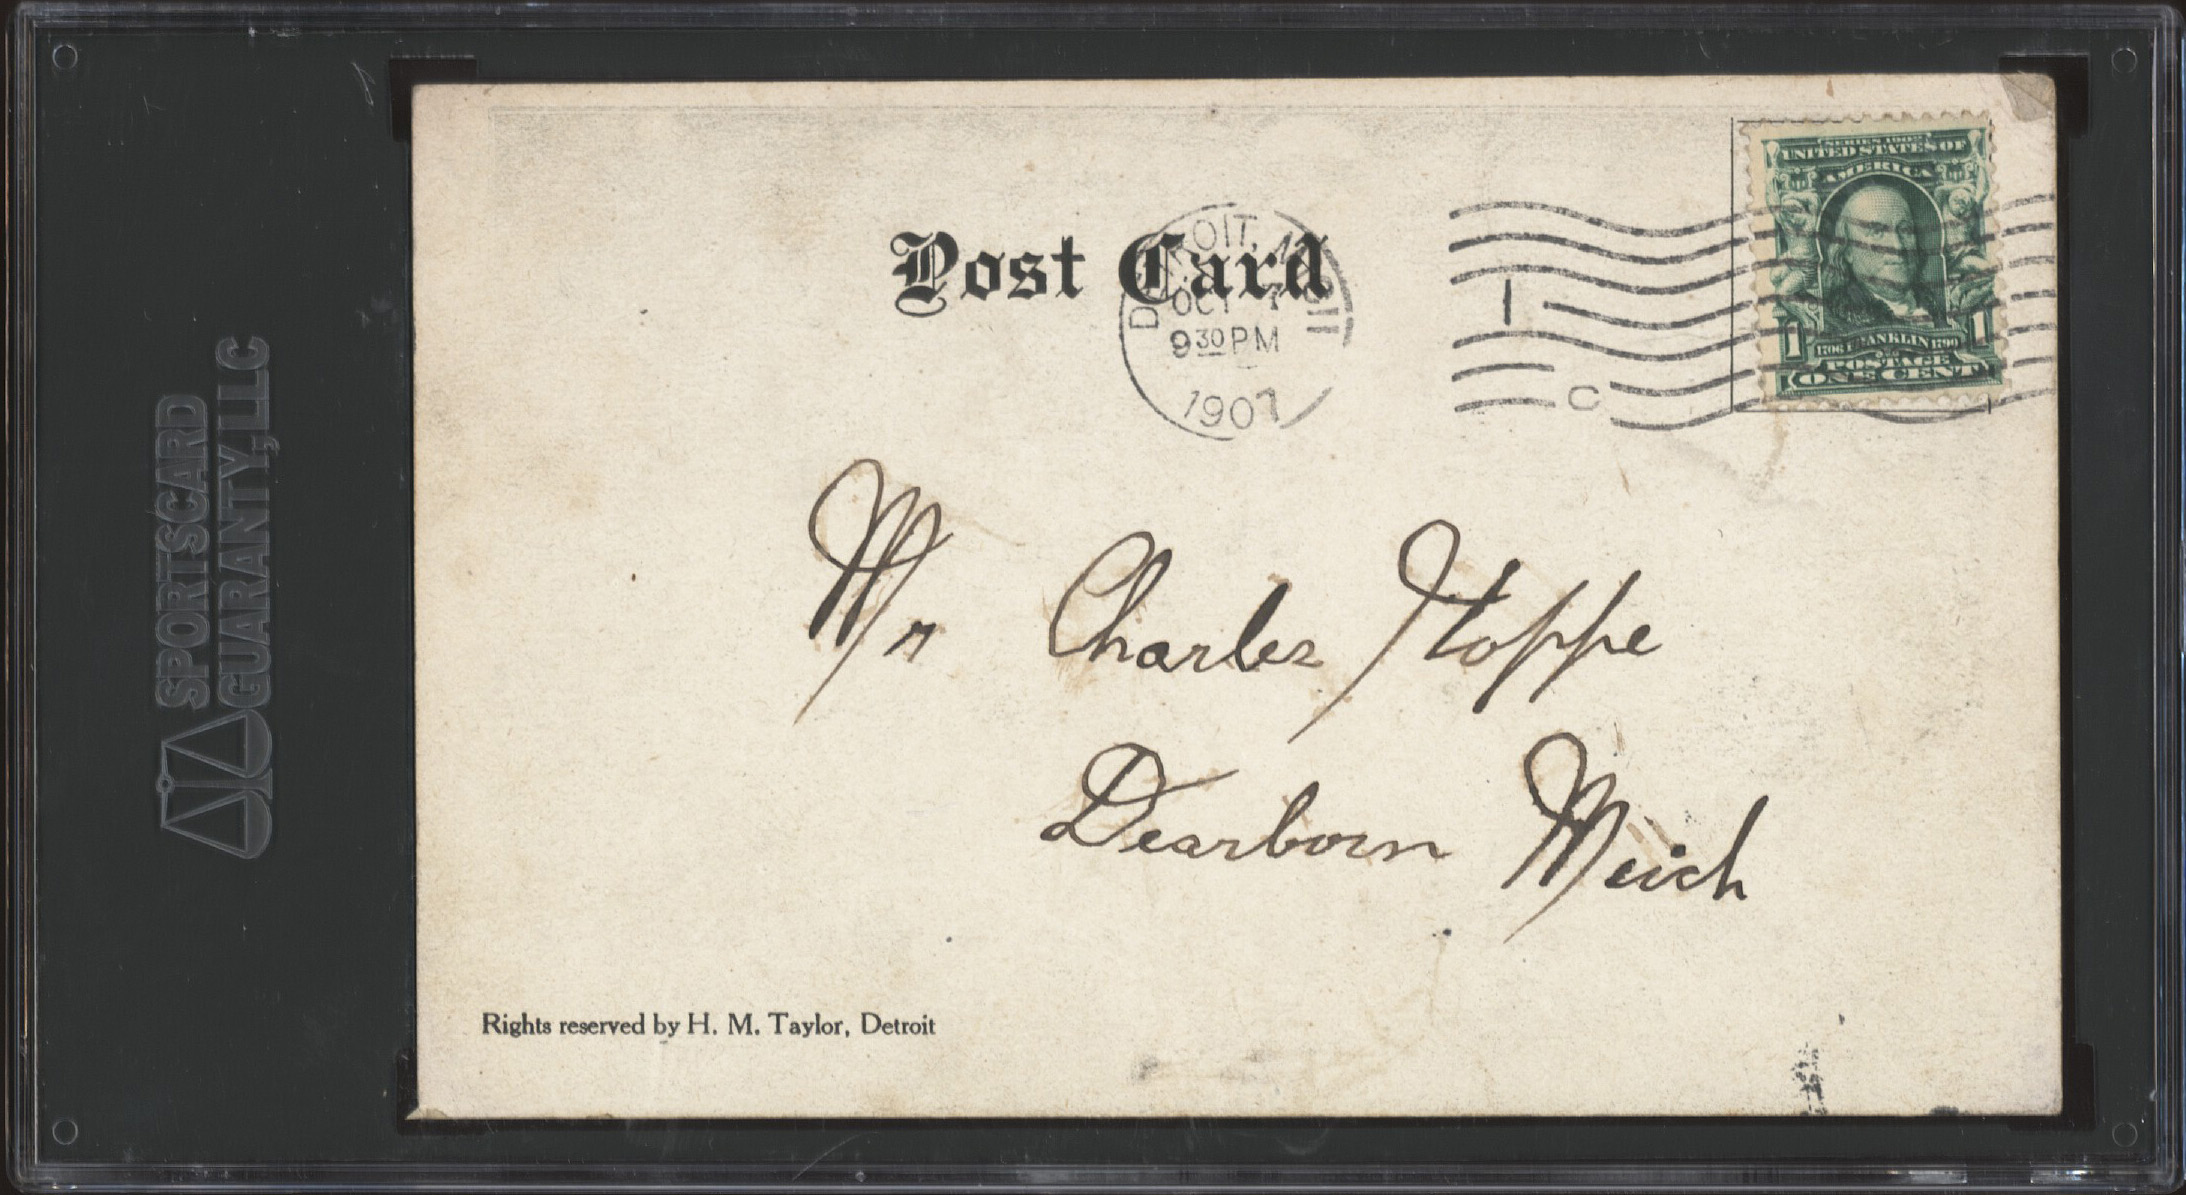 SPORTSCARD
GUARANTY, LLC
Post Card
DETROIT, MICH
OCT
9 30 PM
1907
1
C
SERIES 1902
UNITED STATES OF
AMERICA
1706 FRANKLIN 1790
POSTAGE
1 ONE CENT 1
Mr Charles Hoppe
Dearborn Meich
Rights reserved by H. M. Taylor, Detroit